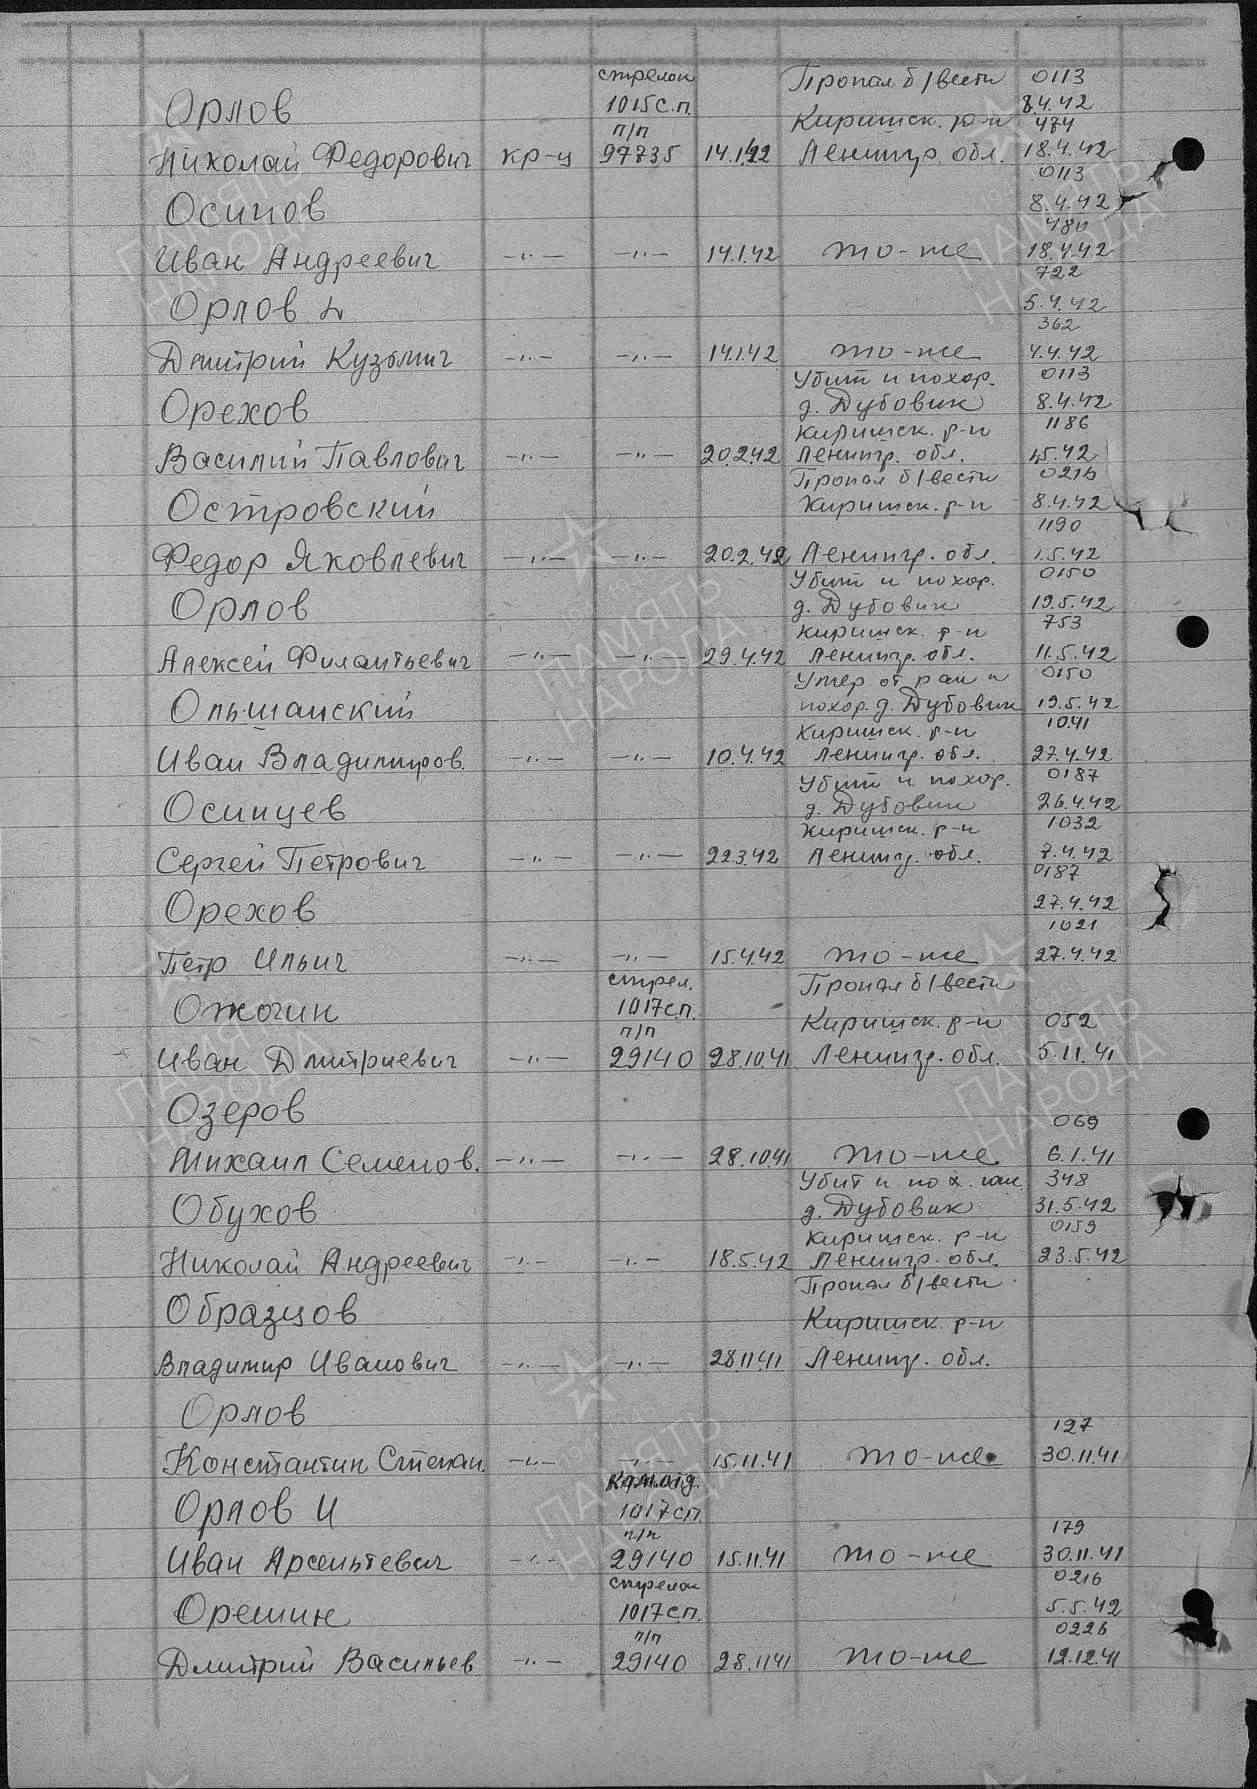 стрелок Пропал б/вести 0113
Орлов 1015 с.п. 8.4.42
п/п Киришск. р-н 474
Николай Федорович кр-ц 97735 14.1.42 Ленингр. обл. 18.4.42
0113
Осипов 8.4.42
480
Иван Андреевич -"- -"- 14.1.42 то-же 18.4.42
722
Орлов Д 5.4.42
362
Дмитрий Кузьмич -"- -"- 14.1.42 то-же 4.4.42
Убит и похор. 0113
Орехов д. Дубовик 8.4.42
Киришск. р-н 1186
Василий Павлович -"- -"- 20.2.42 Ленингр. обл. 1.5.42
Пропал б/вести 0216
Островский Киришск. р-н 8.4.42
1190
Федор Яковлевич -"- -"- 20.2.42 Ленингр. обл. 1.5.42
Убит и похор. 0150
Орлов д. Дубовик 19.5.42
Киришск. р-н 753
Алексей Филантьевич -"- -"- 29.4.42 Ленингр. обл. 11.5.42
Умер от ран и 0150
Ольшанский похор. д. Дубовик 19.5.42
Киришск. р-н 1041
Иван Владимиров. -"- -"- 10.4.42 Ленингр. обл. 27.4.42
Убит и похор. 0187
Осинцев д. Дубовик 26.4.42
Киришск. р-н 1032
Сергей Петрович -"- -"- 22.3.42 Ленингр. обл. 7.4.42
0187
Орехов 27.4.42
1021
Петр Ильич -"- -"- 15.4.42 то-же 27.4.42
стрел. Пропал б/вести
Ожогин 1017 с.п.
п/п Киришск. р-н 052
Иван Дмитриевич -"- 29140 28.10.41 Ленингр. обл. 5.11.41
Озеров
069
Михаил Семенов. -"- -"- 28.10.41 то-же 6.1.41
Убит и пох. 348
Обухов д. Дубовик 31.5.42
Киришск. р-н 0159
Николай Андреевич -"- -"- 18.5.42 Ленингр. обл. 23.5.42
Пропал б/вести
Образцов Киришск. р-н
Владимир Иванович -"- -"- 28.11.41 Ленингр. обл.
Орлов
127
Константин Степан. -"- -"- 15.11.41 то-же 30.11.41
Орлов И 1017 сп.
п/п 179
Иван Арсентьевич -"- 29140 15.11.41 то-же 30.11.41
стрелок 0216
Орешин 1017 с.п. 5.5.42
п/п 0226
Дмитрий Васильев -"- 29140 28.11.41 то-же 12.12.41
ПАМЯТЬ
НАРОДА